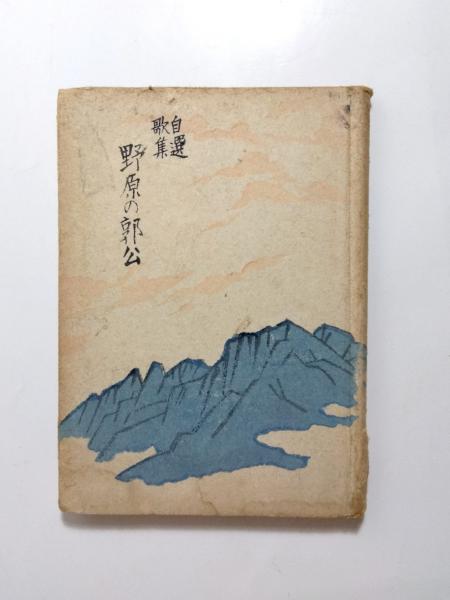 自選
歌集
野原の郭公